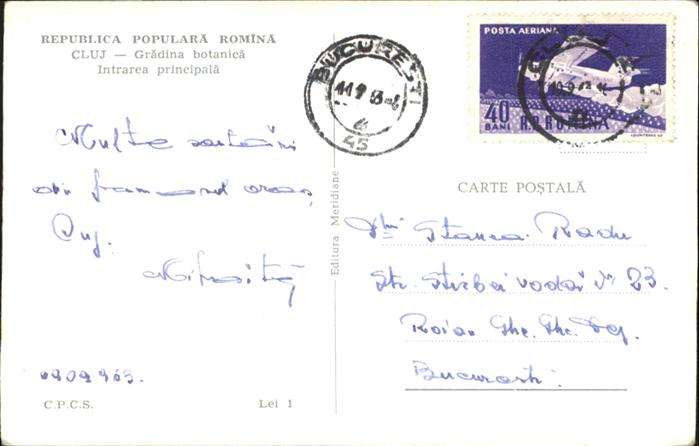 REPUBLICA POPULARĂ ROMÎNĂ
CLUJ — Grădina botanică
Intrarea principală
BUCUREȘTI
45
POSTA AERIANA
40 BANI R.P. ROMINA
Multe salutări
din frumosul oraș
Cluj.
CARTE POȘTALĂ
Editura Meridiane
Stanca Radu
Str. Știrbei vodă Nr 23
Raion Ghe. Ghe. Dej
București
C.P.C.S. Lei 1